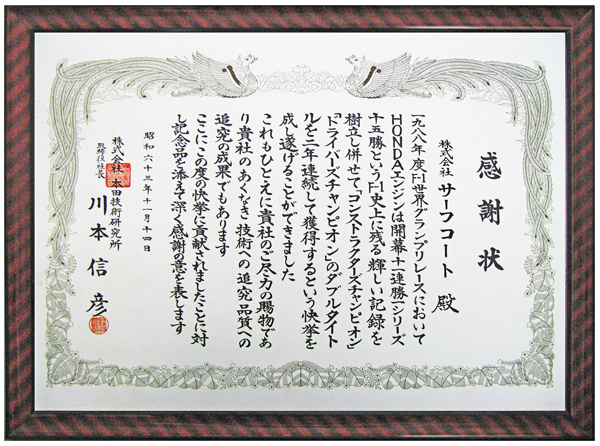 感謝状
株式会社 サーフコート 殿
一九八八年度F-1世界グランプリレースにおいて
HONDAエンジンは開幕十一連勝一シリーズ
十五勝というF-1史上に残る輝しい記録を
樹立し併せて、「コンストラクターズチャンピオン」
「ドライバーズチャンピオン」のダブルタイト
ルを二年連続して獲得するという快挙を
成し遂げることができました
これもひとえに貴社のご尽力の賜物であ
り貴社のあくなき技術への追究品質への
追究の成果でもあります
ここにこの度の快挙に貢献されましたことに対
し記念品を添えて深く感謝の意を表します
昭和六十三年十一月十四日
株式会社 本田技術研究所
取締役社長 川本信彦